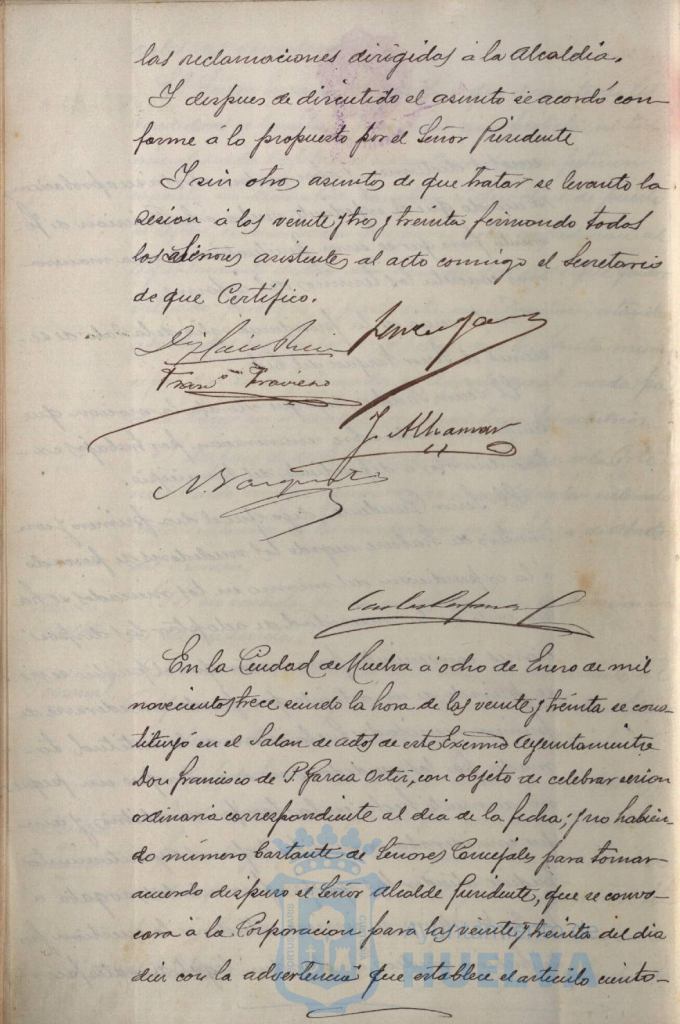 las reclamaciones dirigidas á la Alcaldia.
Y despues de discutido el asunto se acordó con-
forme á lo propuesto por el Señor Presidente
Y sin otros asuntos de que tratar se levanto la
sesion á las veinte y tres y treinta firmando todos
los Señores asistentes al acto conmigo el Secretario
de que Certifico.
Fran.co Travieso
J. Alhamar
N. Vazquez
En la Ciudad de Huelva á ocho de Enero de mil
novecientos trece siendo la hora de las veinte y treinta se cons-
tituyó en el Salon de actos de este Excmo Ayuntamiento
Don Francisco de P. Garcia Ortiz, con objeto de celebrar sesion
ordinaria correspondiente al dia de la fecha; y no habien-
do número bastante de Señores Concejales para tomar
acuerdo dispuso el Señor Alcalde Presidente, que se convo-
cara á la Corporacion para las veinte y treinta del dia
diez con la advertencia que establece el articulo ciento-
HUELVA